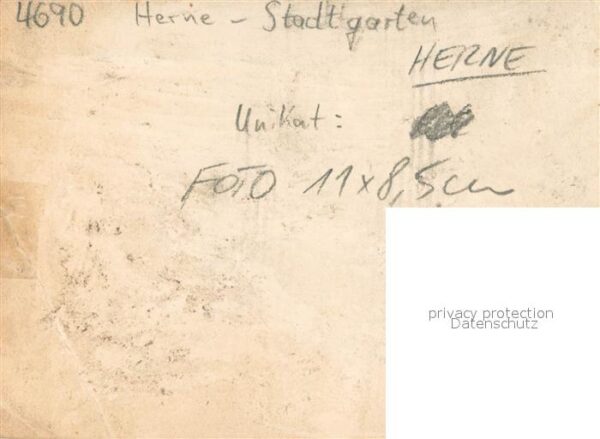 4690 Herne - Stadtgarten
HERNE
Unikat:
FOTO 11x8,5cm
privacy protection
Datenschutz